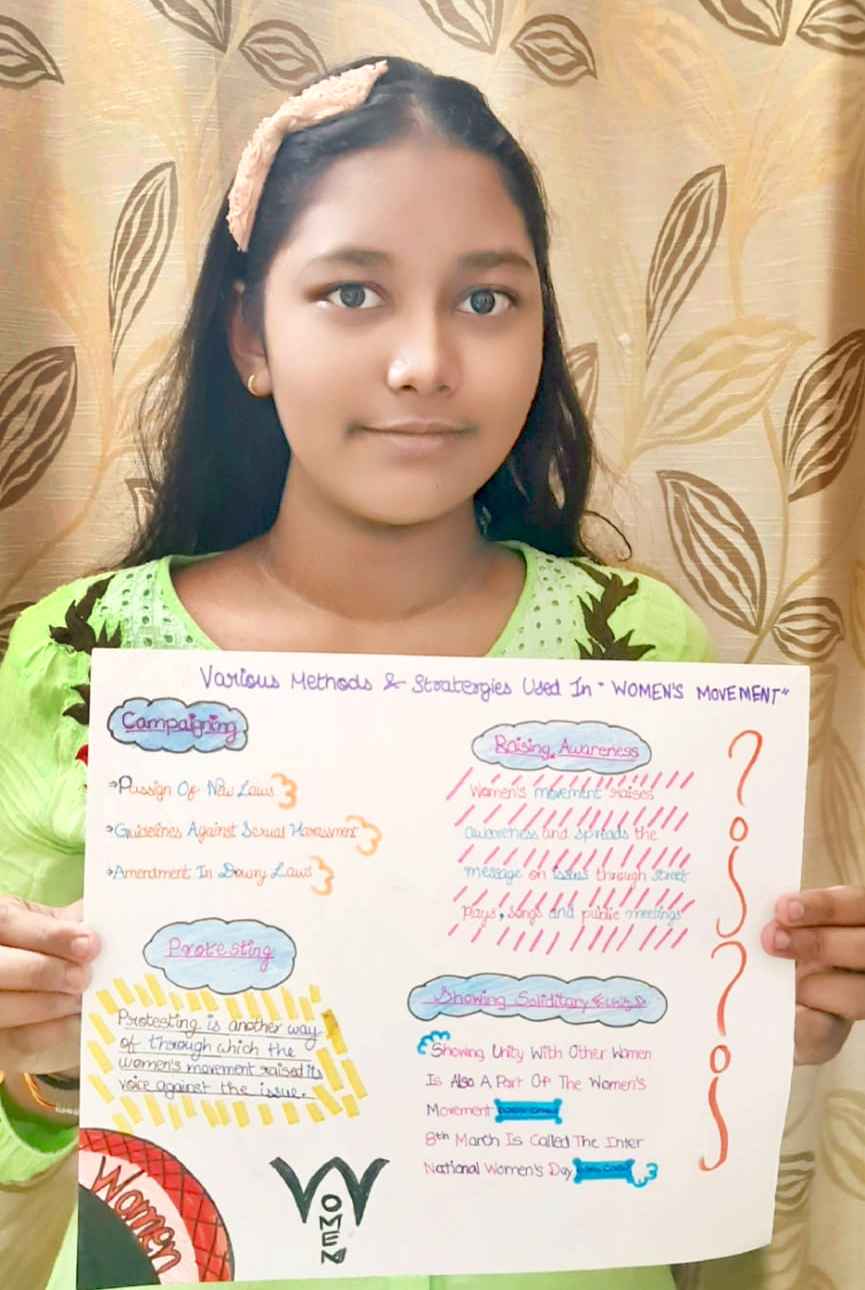 Various Methods & Stratergies Used In "WOMEN'S MOVEMENT"
Campaigning
→Passign Of New Laws
→Guidelines Against Sexual Harassment
→Amendment In Dowry Laws
Protesting
Protesting is another way
of through which the
women's movement raised its
voice against the issue.
Women
WOMEN
Raising Awareness
Women's movement raises
awareness and spreads the
message on issues through street
plays, songs and public meetings
Showing Soliditary
Showing Unity With Other Women
Is Also A Part Of The Women's
Movement
8th March Is Called The Inter
National Women's Day